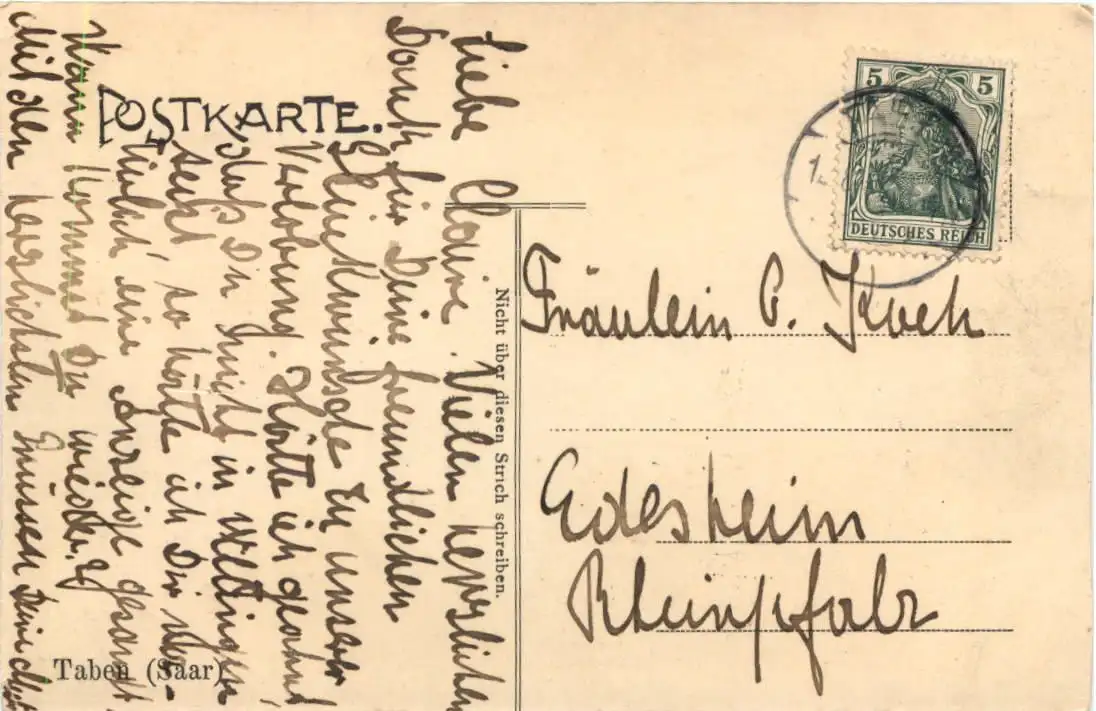 POSTKARTE.
Liebe Claire. Vielen herzlichen
Dank für Deine freundlichen
Glückwünsche zu unserer
Verlobung. Hätte ich geahnt
daß Du nicht in Wellingen
seist so hätte ich Dir
eine Anzeige gesandt
Wann kommst Du wieder?
Mit den herzlichsten Grüssen Deine
Nicht über diesen Strich schreiben.
Taben (Saar)
5 5
DEUTSCHES REICH
Fräulein C. Koch
Edesheim
Rheinpfalz